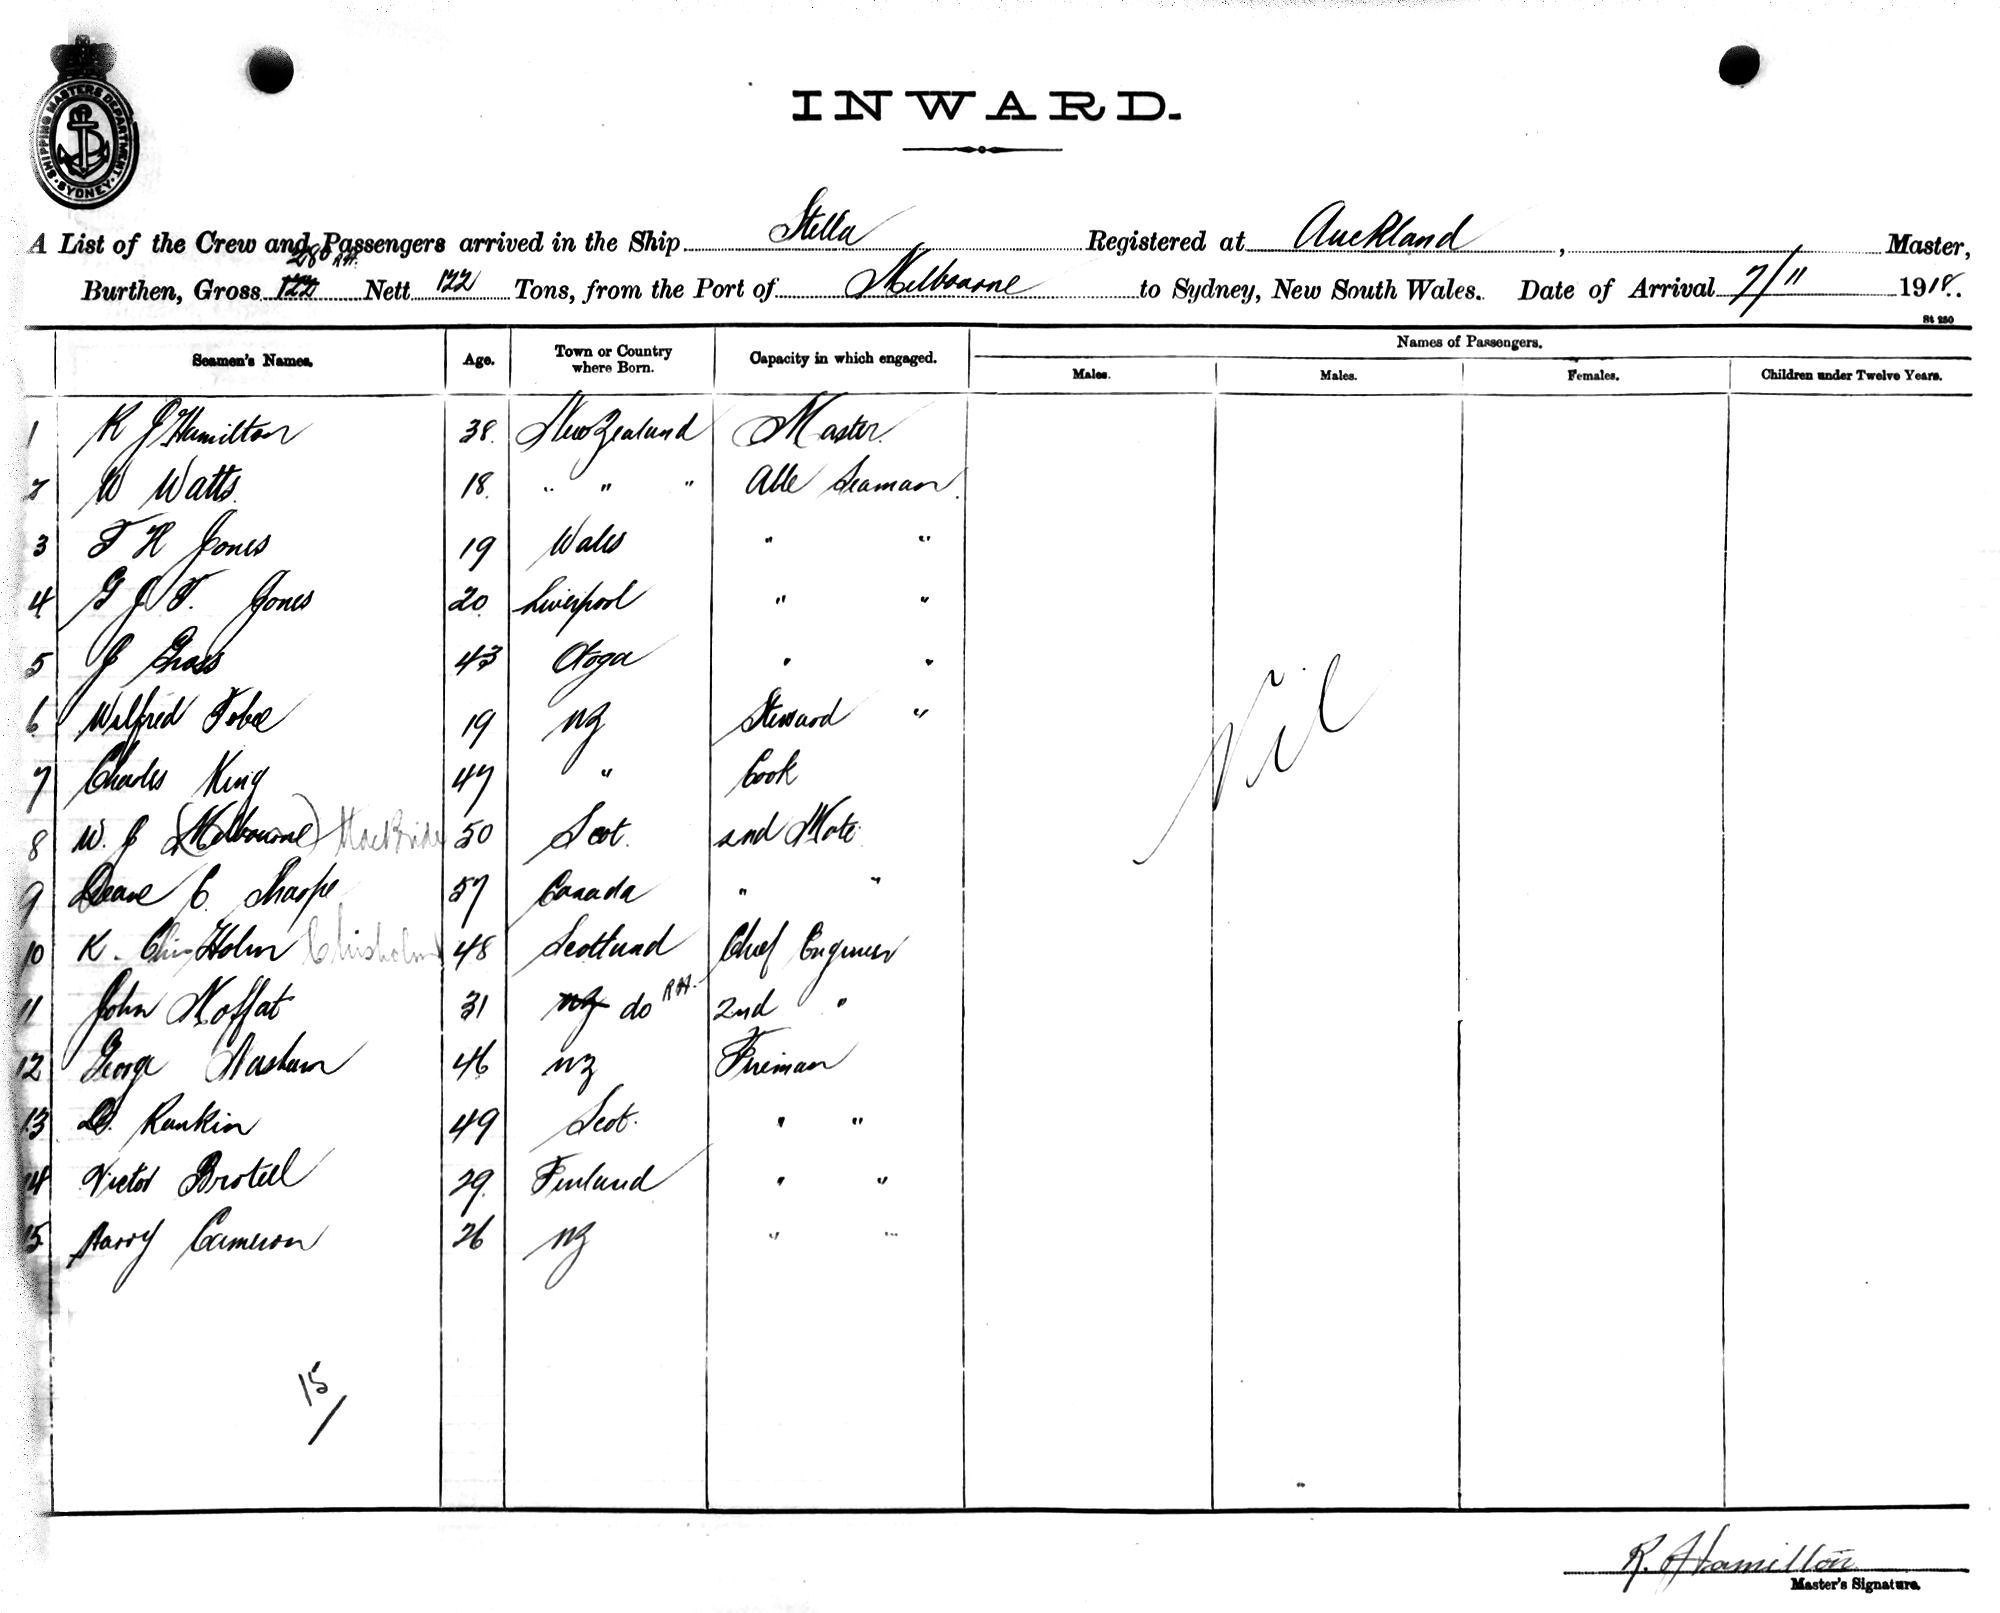 SHIPPING MASTERS DEPARTMENT
SYDNEY
INWARD.
A List of the Crew and Passengers arrived in the Ship Stella Registered at Auckland , Master,
286 RH.
Burthen, Gross 122 Nett 122 Tons, from the Port of Melbourne to Sydney, New South Wales. Date of Arrival 7/11 1918.
St 250
Seamen's Names. Age. Town or Country where Born. Capacity in which engaged. Names of Passengers.
Males. Males. Females. Children under Twelve Years.
1 R J Hamilton 38. New Zealand Master.
2 W Watts. 18. " " " Able Seaman.
3 T H Jones 19 Wales " "
4 G J T. Jones 20. Liverpool " "
5 J 43 " "
6 Wilfred 19 NZ Steward "
7 Charles King 47 " Cook
8 W. J (Melbourne) MacBride 50 Scot. 2nd Mate
9 Deane C. Sharpe 57 Canada " "
10 K. Holm Chisholm 48 Scotland Chief Engineer
11 John Moffat 31 NZ do RH. 2nd "
12 George 46 NZ Fireman
13 D. Rankin 49 Scot. " "
14 Victor Brotell 29. Finland " "
15 Harry Cameron 26 NZ " "
Nil
15/
R. J Hamilton
Master's Signature.